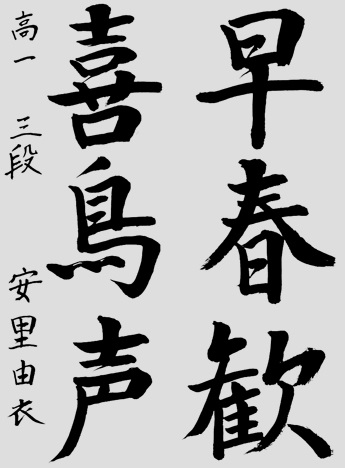 早春歓
喜鳥声
高一 三段 安里由衣